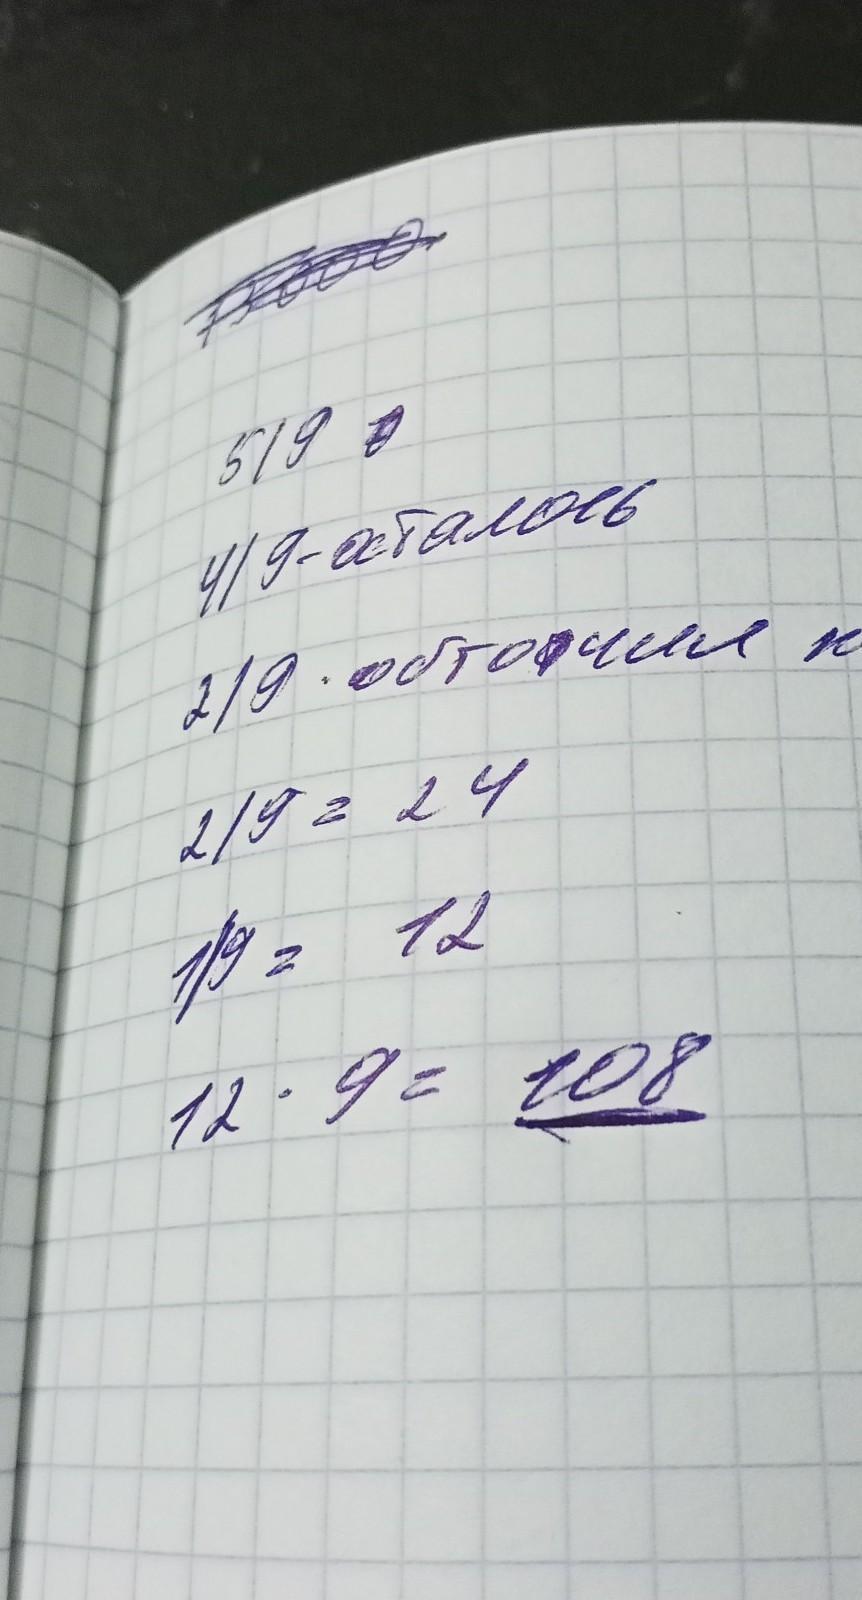 5/9
4/9-осталось
2/9 · обточил н
2/9 = 24
1/9 = 12
12 · 9 = 108